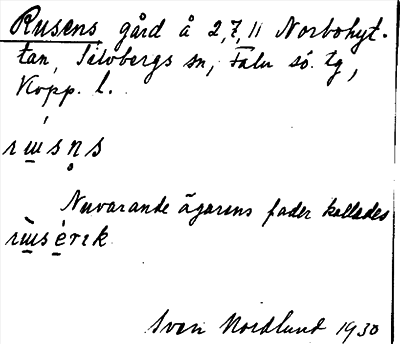 Rusens gård å 2,7,11 Norbohyt-
tan, Silvbergs sn, Falu sö. tg,
Kopp. l.
rɯsn̥s
Nuvarande ägarens fader kallades
rɯ̀sèrɪk
Sven Nordlund 1930